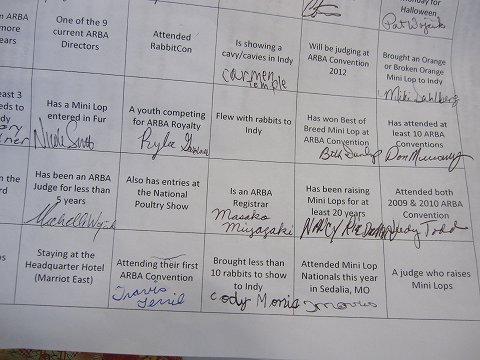 onday for
Halloween
Pat Wojcik
n ARBA
more
ears
One of the 9
current ARBA
Directors
Attended
RabbitCon
Is showing a
cavy/cavies in Indy
Carmen
Temple
Will be judging at
ARBA Convention
2012
Brought an Orange
or Broken Orange
Mini Lop to Indy
Miki Dahlberg
ast 3
eds to
dy
Has a Mini Lop
entered in Fur
A youth competing
for ARBA Royalty
Rylee
Flew with rabbits to
Indy
Has won Best of
Breed Mini Lop at
ARBA Convention
Beth Dunlop
Has attended at
least 10 ARBA
Conventions
Don
n the
ard
Has been an ARBA
Judge for less than
5 years
Michelle
Also has entries at
the National
Poultry Show
Is an ARBA
Registrar
Masako
Miyazaki
Has been raising
Mini Lops for
at least 20 years
Nancy
Attended both
2009 & 2010 ARBA
Convention
Judy Todd
os
Staying at the
Headquarter Hotel
(Marriot East)
Attending their first
ARBA Convention
Travis
Brought less than
10 rabbits to show
to Indy
Cody
Attended Mini Lop
Nationals this year
in Sedalia, MO
A judge who raises
Mini Lops